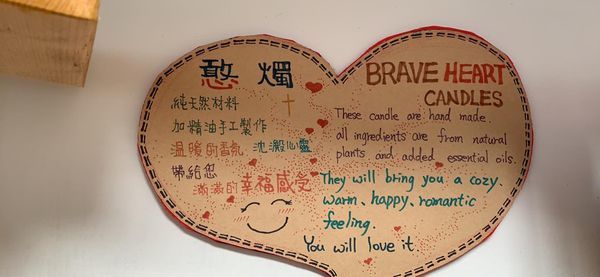 憨 燭
純天然材料
加精油手工製作
溫暖的香氛 沈澱心靈
帶給您
滿滿的幸福感受
BRAVE HEART
CANDLES
These candle are hand made.
all ingredients are from natural
plants and added essential oils.
They will bring you a cozy.
warm、happy、romantic
feeling.
You will love it.